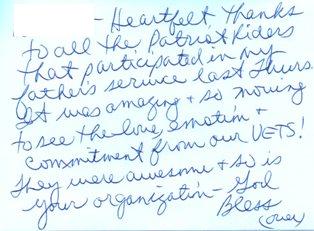 - Heartfelt Thanks
to all the Patriot Riders
that participated in my
father's service last Thurs.
It was amazing + so moving
to see the love, emotion +
commitment from our VETS!
They were awesome + so is
your organization - God
Bless
(over)